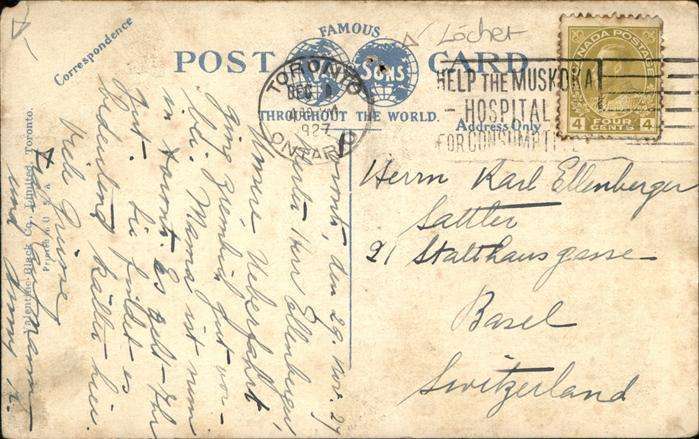 Correspondence
FAMOUS
Löcher
POST CARD
SONS
THROUGHOUT THE WORLD.
Address Only
TORONTO
DEC 1
1927
ONTARIO
HELP THE MUSKOKA
HOSPITAL
FOR CONSUMPTI
CANADA POSTAGE
4 FOUR CENTS 4
Herrn Karl Ellenberger
Sattler
21 Stalthausgasse
Basel
Switzerland
den 29. Nov. 27
Herr Ellenberger!
Unsere Ueberfahrt
ging ziemlich gut vor-
bei. Mama ist nun
in Toronto. Es geht Ihr
gut. Sie findet es
bedeutend kälter hier.
Viele Grüsse
und
Valentine-Black Co., Limited, Toronto.
Printed in